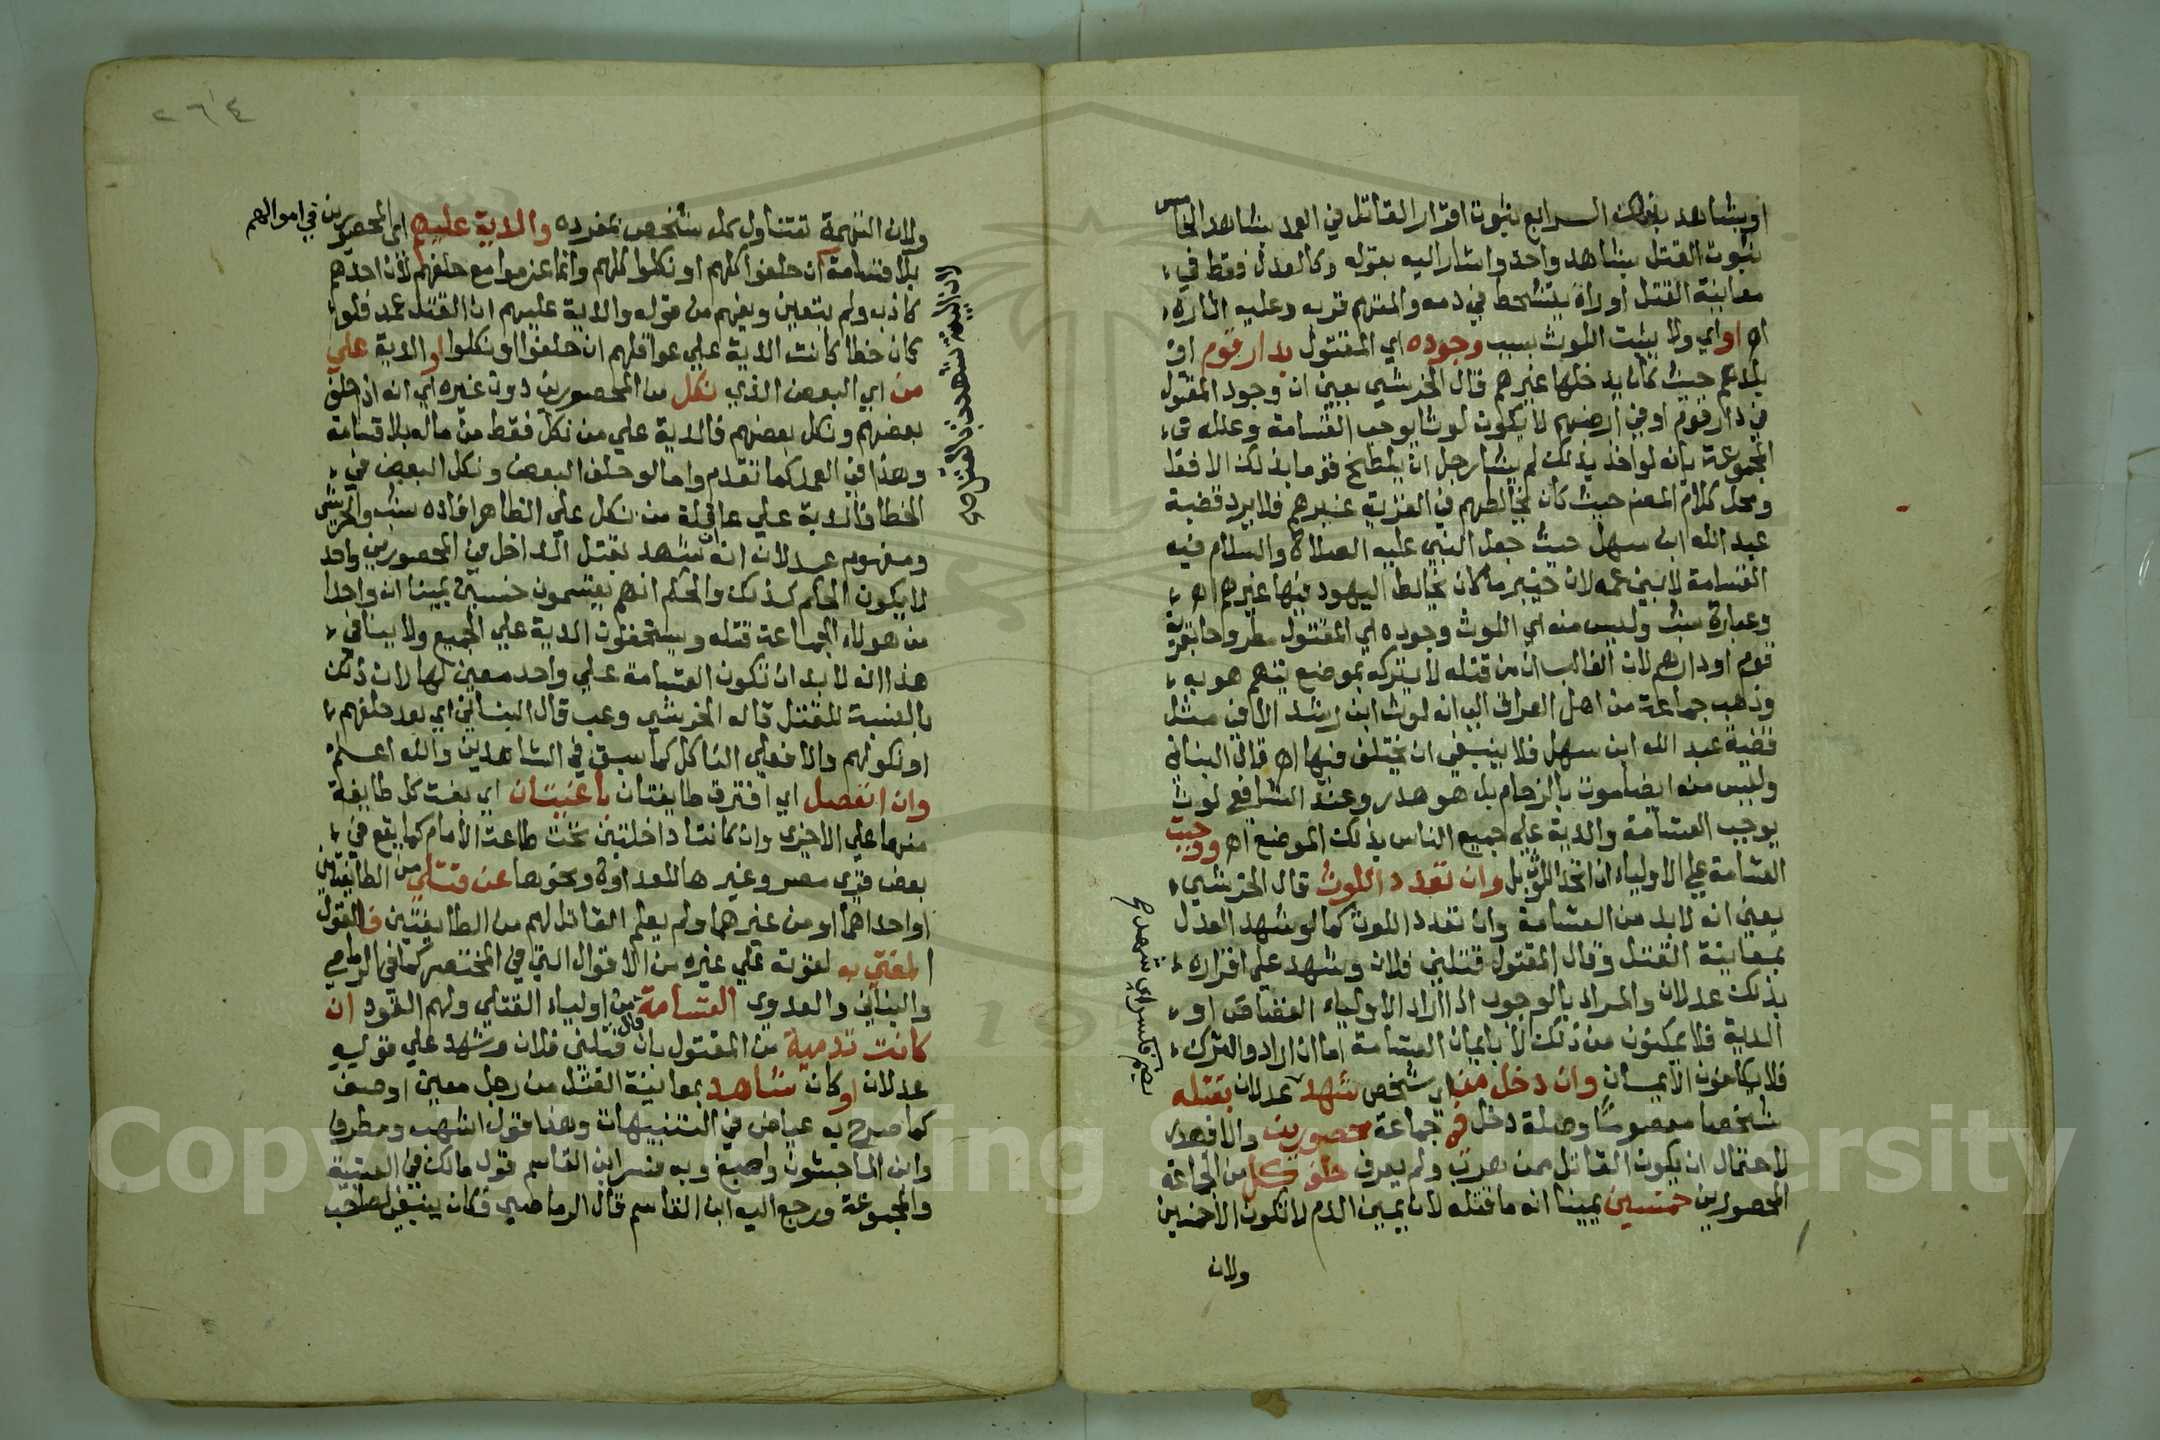 او بشاهد بذلك الرابع ثبوت اقرار القاتل في العمد بشاهد الخامس
ثبوت القتل بشاهد واحد واشار اليه بقوله وكالعدل فقط في
معاينة القتل او راه يتشحط في دمه والمتهم قربه وعليه اثاره
اه او اي ولا يثبت اللوث بسبب وجوده اي المقتول بدار قوم او
بلدهم حيث كان يدخلها غيرهم قال الخرشي يعني ان وجود المقتول
في دار قوم او في ارضهم لا يكون لوثا يوجب القسامة وعلله في
المجموعة بانه لو اخذ بذلك لم يشا رجل ان يلطخ قوما بذلك الا فعل
ومحل كلام المصنف حيث كان يخالطهم في القرية غيرهم فلا يرد قضية
عبد الله ابن سهل حيث جعل النبي عليه الصلاة والسلام فيه
القسامة لابني عمه لان خيبر ما كان يخالط اليهود فيها غيرهم اه
وعبارة شب وليس منه اي اللوث وجوده اي المقتول مطروحا بقرية
قوم او دارهم لان الغالب ان من قتله لا يتركه بموضع يتهم هو به
وذهب جماعة من اهل العراق الى انه لوث ابن رشد الا في مثل
قضية عبد الله ابن سهل فلا ينبغي ان يختلف فيها اه قال البناني
وليس منه ايضا موت بالزحام بل هو هدر وعند الشافعي لوث
يوجب القسامة والدية على جميع الناس بذلك الموضع اه ووجبت
القسامة علي الاولياء ان اتحد اللوث بل وان تعدد اللوث قال الخرشي
يعني انه لا بد من القسامة وان تعدد اللوث كما لو شهد العدل
بمعاينة القتل وقال المقتول قتلني فلان وشهد علي اقراره
بذلك عدلان والمراد بالوجوب اذا اراد الاولياء القصاص او
الدية فلا يمكنون من ذلك الا بايمان القسامة اما ان ارادوا الترك
فلا يكلفون الايمان وان دخل من اي شخص شهد عدلان بقتله
شخصا معصوما وصلة دخل في جماعة محصورين والا فهدر
لاحتمال ان يكون القاتل ممن هرب ولم يعرف حلف كل من الجماعة
المحصورين خمسين يمينا انه ما قتله لان يمين الدم لا تكون الا خمسين
ولان
ولان التهمة تتناول كل شخص بمفرده والدية عليهم اي المحصورين في اموالهم
بلا قسامة ان حلفوا كلهم او نكلوا كلهم وانما غرموا مع حلفهم لان احدهم
كاذب ولم يتعين ويفهم من قوله والدية عليهم ان القتل عمد فلو
كان خطا كانت الدية علي عواقلهم ان حلفوا او نكلوا او الدية علي
من اي البعض الذي نكل من المحصورين دون غيره اي انه اذا حلف
بعضهم ونكل بعضهم فالدية علي من نكل فقط من ماله بلا قسامة
وهذا في العمد كما تقدم واما لو حلف البعض ونكل البعض في
الخطا فالدية علي عاقلة من نكل علي الظاهر افاده شب والخرشي
ومفهوم عدلان انه ان شهد بقتل الداخل من المحصورين واحد
لا يكون الحكم كذلك والحكم انهم يقسمون خمسين يمينا ان واحدا
من هولاء الجماعة قتله ويستحقون الدية علي الجميع ولا ينافي
هذا انه لا بد ان تكون القسامة علي واحد معين لها لان ذلك
بالنسبة للقتل قاله الخرشي وعب قال البناني اي بعد حلفهم
او نكولهم والا فعلي الناكل كما سبق في الشاهدين والله اعلم
وان انفصل اي افترق طايفتان باغيتان اي بغت كل طايفة
منهما علي الاخرى وان كانتا داخلتين تحت طاعة الامام كما يقع في
بعض قرى مصر وغيرها للعداوة ونحوها عن قتلي من الطايفتين
او احداهما او من غيرهما ولم يعلم القاتل لهم من الطايفتين فالقول
المفتي به لقوته علي غيره من الاقوال التي في المختصر كما في الرماصي
والبناني والعدوي القسامة من اولياء القتلي ولهم القود ان
كانت تدمية من المقتول بان قال قتلني فلان وشهد علي قوليه
عدلان او كان شاهد بمعاينة القتل من رجل معين او صف
كما صرح به عياض في التنبيهات وهذا قول اشهب ومطرف
وابن الماجشون واصبغ وبه فسر ابن القاسم قول مالك في العتبية
والمجموعة ورجع اليه ابن القاسم قال الرماصي فكان ينبغي لصاحب
٢٦٤
Copyright © King Saud University
1957